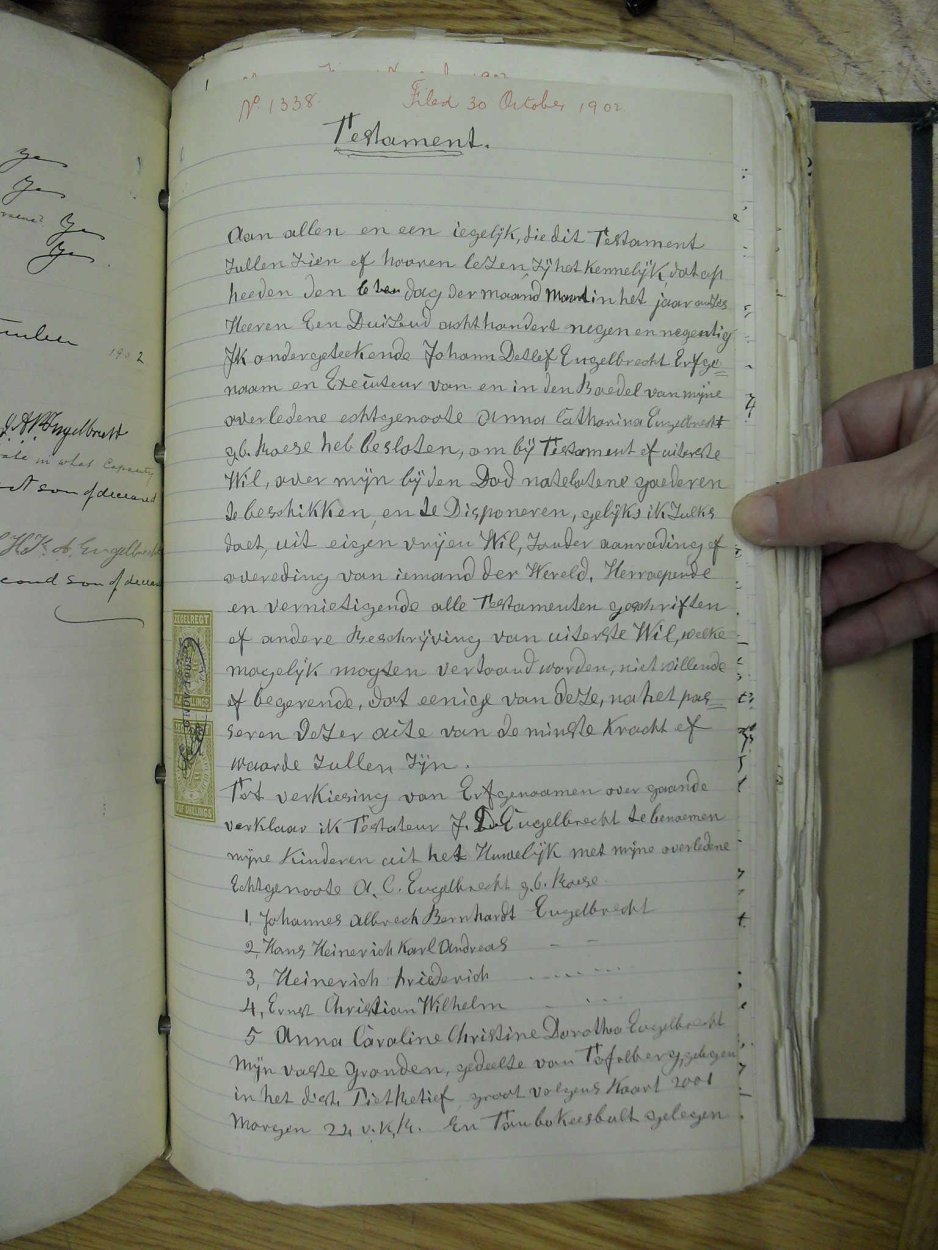 ye
ye
ye
ye
190 2
A B Engelbrecht
state in what Capacity
son of deceased
H. K. A. Engelbrecht
second son of deceased
No. 1338. Filed 30 October 1902
Testament.
Aan allen en een iegelijk, die dit Testament
Zullen Zien of hooren lezen, Zij het kennelijk, dat op
heeden den dag der maand Maart in het jaar onzes
Heeren Een Duizend achthondert negen en negentig
Ik ondergeteekende Johann Detlef Engelbrecht Erfge=
naam en Executeur van en in den Boedel van mijne
overledene echtgenoote Anna Catharina Engelbrecht
gb. Koese heb besloten, om bij Testament of uiterste
Wil, over mijn bij den Dod natelatene goederen
te beschikken, en te Disponeren, gelijk ik Zulks
doet, uit eigen vrijen Wil, Zonder aanrading of
overeding van iemand der Wereld. Herroepende
en vernietigende alle Testamenten geschriften
of andere Beschrijving van uiterste Wil, welke
mogelijk mogten vertoand worden, niet willende
of begerende, dat eenige van deze, na het pas=
seren Dezer acte van de minste Kracht of
waarde Zullen Zijn.
Tot verkiesing van Erfgenoamen over gaande
verklaar ik Testateur J. D. Engelbrecht te benoemen
mijne Kinderen uit het Huwelijk met mijne overledene
Echtgenoote A. C. Engelbrecht gb. Koese.
1. Johannes Albrech Bernhardt Engelbrecht
2, Hans Heinerich Karl Andreas - -
3, Heinerich Friederich
4, Ernst Christian Wilhelm
5 Anna Caroline Christine Dorothea Engelbrecht
Mijn vaste Gronden, gedeelte van Tafelberg, gelegen
in het dist. Pietretief, groot volgens Kaart 2001
Morgen 22 v.K.R. En Tambokiesbult gelegen
ZEGELREGT
SHILLINGS